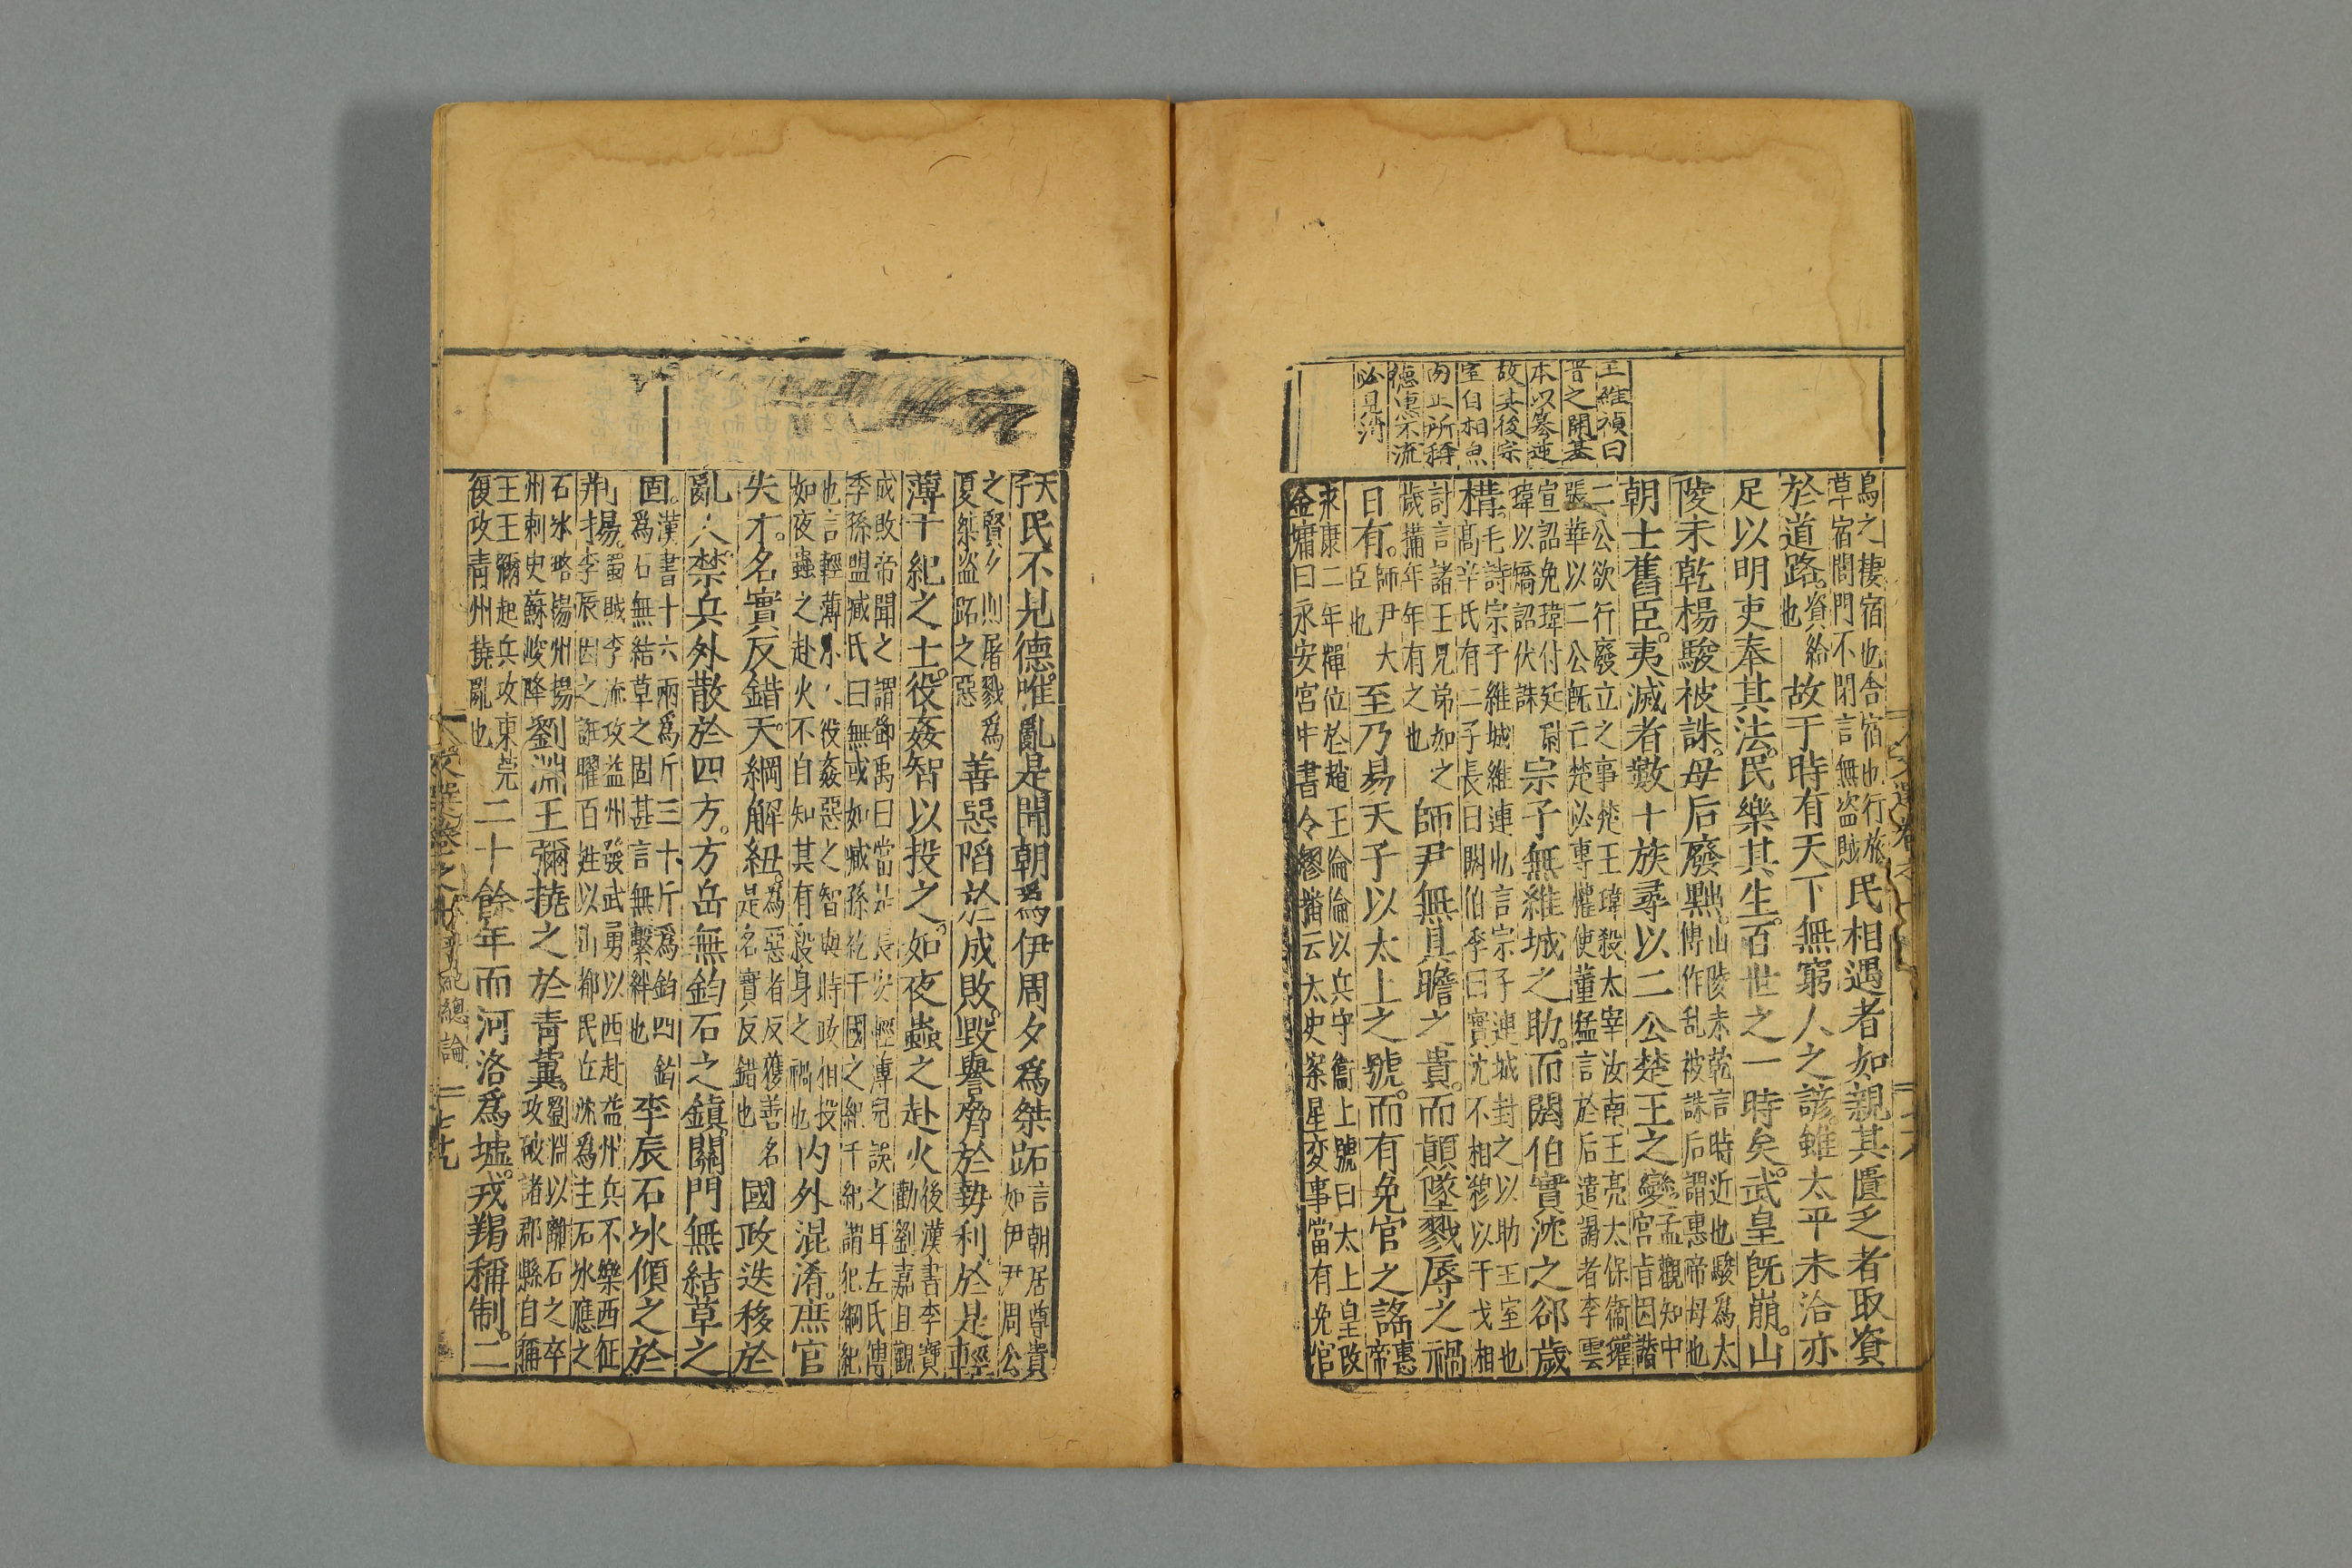 王維禎曰
晉之開基
本以篡逆
故其後宗
室自相魚
肉正所稱
德惠不流
必見淪
鳥之棲宿也舍宿也行旅
草宿閭門不閉言無盜賊
民相遇者如親其匱乏者取資
於道路。
資給
也
故于時有天下無窮人之諺。雖太平未洽亦
足以明吏奉其法。民樂其生。百世之一時矣。武皇旣崩。山
陵未乾楊駿被誅。母后廢黜。
山陵未乾言時近也駿爲太
傅作乱被誅后謂惠帝母也
朝士舊臣。夷滅者數十族尋以二公楚王之變
孟觀知中
宮旨因譖
二公欲行廢立之事楚王瑋殺太宰汝南王亮太保衞瓘
張華以二公旣亡楚必專權使董猛言於后遣謁者李雲
宣詔免瑋付延尉
瑋以矯詔伏誅
宗子無維城之助。而閼伯實沈之郤歲
構。
毛詩宗子維城維連也言宗子連城封之以助王室也
髙辛氏有二子長曰閼伯季曰實沈不相穆以干戈相
討言諸王兄弟如之
歲構年年有之也
師尹無具瞻之貴。而顛墜戮辱之禍
日有。
師尹大
臣也
至乃易天子以太上之號。而有免官之謠
惠
帝
永康二年輝位於趙王倫倫以兵守衞上號曰太上皇改
金墉曰永安宮中書令繆播云太史案星変事當有免官
天
子
民不見德。唯亂是聞朝爲伊周夕爲桀跖
言朝居尊貴
如伊尹周公
之賢夕則屠戮爲
夏桀盜跖之惡
善惡陷於成敗。毀譽脅於勢利於是輕
薄干紀之士。役姦智以投之。如夜蟲之赴火
後漢書李寶
勸劉嘉且觀
成敗帝聞之謂鄧禹曰當是長安輕薄兒誤之耳左氏傳
季孫盟臧氏曰無或如臧孫紇干國之紀干紀謂犯綱紀
也言輕薄小人役姦惡之智與時政相投
如夜蟲之赴火不自知其有殺身之禍也
内外混淆。庶官
失才。名實反錯天。綱解紐。
爲惡者反獲善名
是名實反錯也
國政迭移於
亂人。禁兵外散於四方。方岳無鈞石之鎮。關門無結草之
固。
漢書十六兩爲斤三十斤爲鈞四鈞
爲石無結草之固甚言無繫絆也
李辰石冰傾之於
荆揚。
蜀賊李流攻益州發武勇以西赴益州兵不樂西征
李辰因之誑曜百姓以山都民丘沈爲主石冰應之
石冰略揚州揚
州刺史蘇峻降
劉淵王彌撓之於青冀。
劉淵以離石之卒
攻破諸郡縣自稱
王王彌起兵攻東莞
復攻青州撓亂也
二十餘年而河洛爲墟。戎羯稱制。二